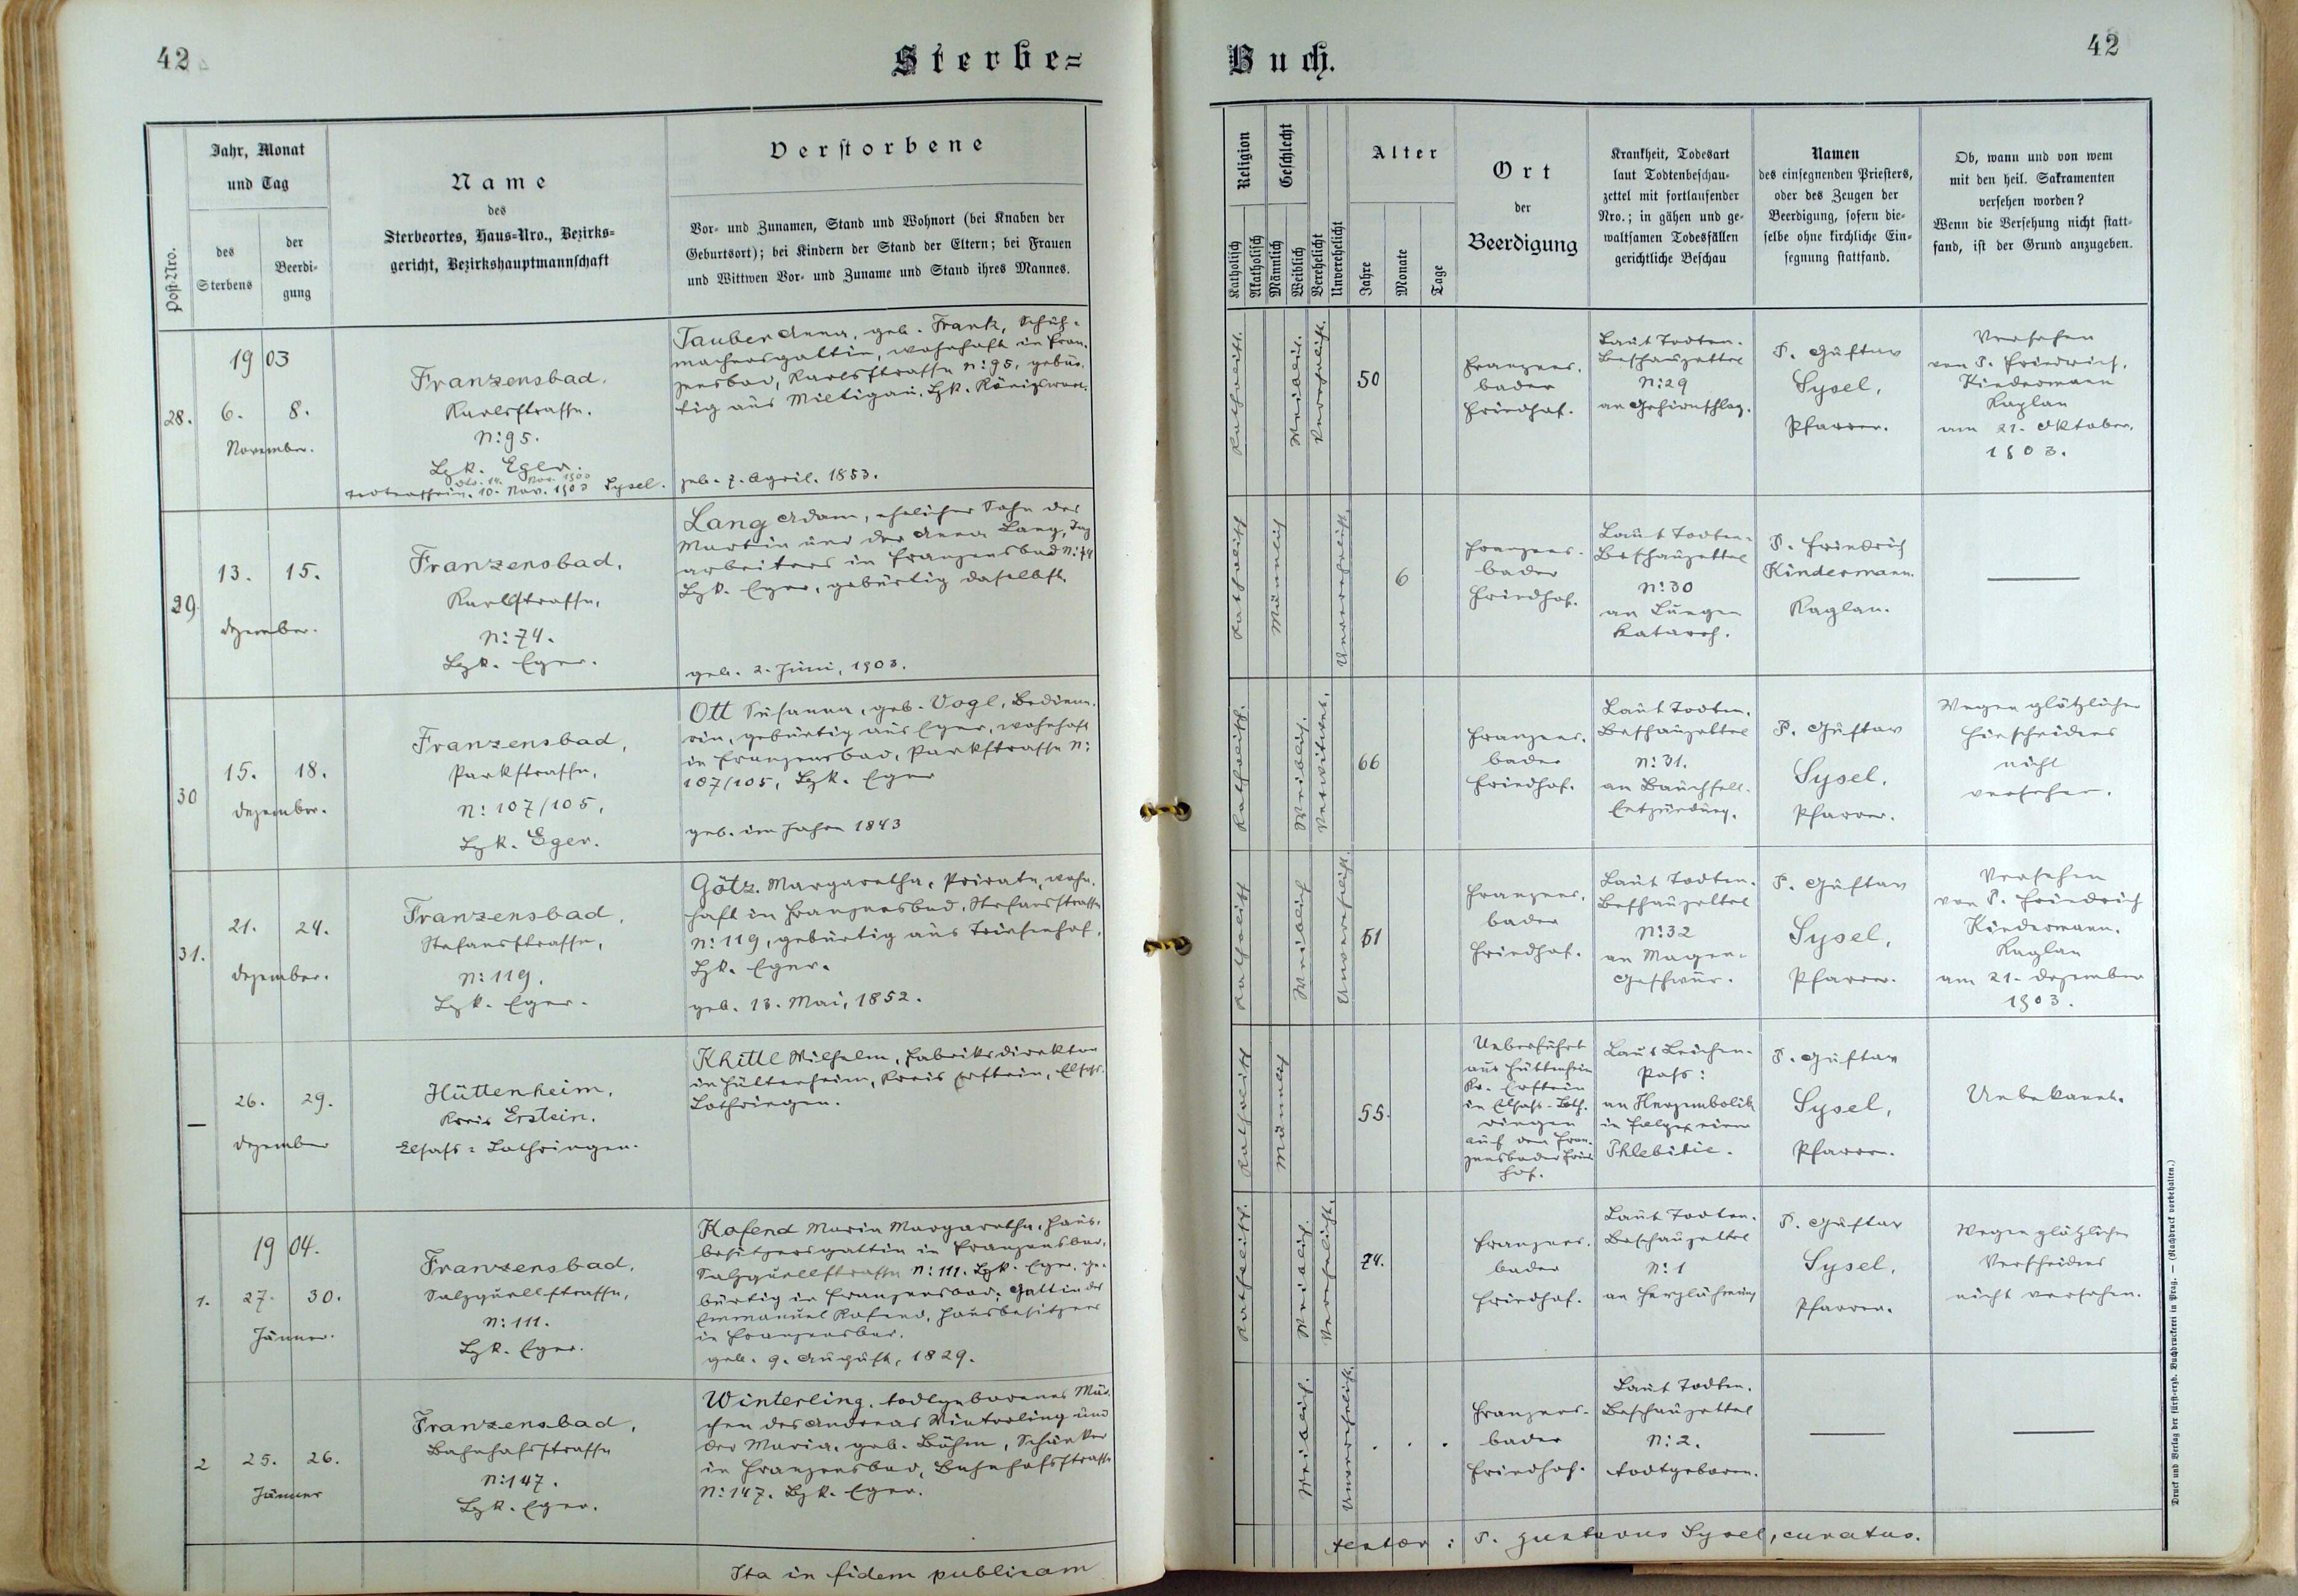 42
Sterbe=
Post-Nro.
Jahr, Monat
und Tag
des
Sterbens
der
Beerdi-
gung
Name
des
Sterbeortes, Haus-Nro., Bezirks-
gericht, Bezirkshauptmannschaft
Verstorbene
Vor- und Zunamen, Stand und Wohnort (bei Knaben der
Geburtsort); bei Kindern der Stand der Eltern; bei Frauen
und Wittwen Vor- und Zuname und Stand ihres Mannes.
28.
1903
6. 8.
November.
Franzensbad,
Karlsstrasse.
N: 95.
Bzk. Eger.
Todtenschein. 10. Nov. 1903 Sysel.
Tauber Anna, geb. Frank, Schuh-
machersgattin, wohnhaft in Fran-
zensbad, Karlsstrasse N: 95, gebür-
tig aus Miltigau, Bzk. Königswart.
geb. 7. April. 1853.
29.
13. 15.
Dezember.
Franzensbad,
Karlsstrasse,
N: 74.
Bzk. Eger.
Lang Adam, ehelicher Sohn des
Martin und der Anna Lang, Tag
arbeiters in Franzensbad N: 74
Bzk. Eger, gebürtig daselbst.
geb. 2. Juni, 1903.
30
15. 18.
Dezember.
Franzensbad,
Parkstrasse,
N: 107/105,
Bzk. Eger.
Ott Susanna, geb. Vogl, Bediene-
rin, gebürtig aus Eger, wohnhaft
in Franzensbad, Parkstrasse N:
107/105, Bzk. Eger
geb. im Jahre 1843
31.
21. 24.
Dezember.
Franzensbad,
Stefansstrasse,
N: 119,
Bzk. Eger.
Götz Margaretha, Private, wohn-
haft in Franzensbad, Stefansstrasse
N: 119, gebürtig aus Triesenhof,
Bzk. Eger.
geb. 13. Mai, 1852.
—
26. 29.
Dezember
Hüttenheim,
Kreis Erstein.
Elsass=Lothringen.
Khittl Wilhelm, Fabriksdirektor
in Hüttenheim, Kreis Erstein, Elsass-
Lothringen.
1904.
1.
27. 30.
Jänner.
Franzensbad,
Salzquellstrasse,
N: 111.
Bzk. Eger.
Kofend Maria Margaretha, Haus-
besitzersgattin in Franzensbad,
Salzquellstrasse N: 111. Bzk. Eger, ge-
bürtig in Franzensbad; Gattin des
Emmanuel Kofend, Hausbesitzers
in Franzensbad.
geb. 9. August, 1829.
2
25. 26.
Jänner
Franzensbad,
Bahnhofsstrasse
N: 147.
Bzk. Eger.
Winterling, todtgeborenes Mäd-
chen des Andreas Winterling und
der Maria, geb. Böhm, Schänker
in Franzensbad, Bahnhofsstrasse
N: 147. Bzk. Eger.
Ita in fidem publicam
Buch.
42
Religion
Katholisch
Akatholisch
Geschlecht
Männlich
Weiblich
Verehelicht
Unverehelicht
Alter
Jahre
Monate
Tage
Ort
der
Beerdigung
Krankheit, Todesart
laut Todtenbeschau-
zettel mit fortlaufender
Nro.; in gähen und ge-
waltsamen Todesfällen
gerichtliche Beschau
Namen
des einsegnenden Priesters,
oder des Zeugen der
Beerdigung, sofern die-
selbe ohne kirchliche Ein-
segnung stattfand.
Ob, wann und von wem
mit den heil. Sakramenten
versehen worden?
Wenn die Versehung nicht statt-
fand, ist der Grund anzugeben.
Katholisch.
Weiblich.
Verehelicht.
50
Franzens-
bader
Friedhof.
Laut Todten-
Beschauzettel
N: 29
an Gehirnschlag.
P. Gustav
Sysel,
Pfarrer.
Versehen
von P. Friedrich,
Kindermann
Kaplan
am 21. Oktober,
1903.
Katholisch
Männlich
Unverehelicht.
6
Franzens-
bader
Friedhof.
Laut Todten-
Beschauzettel
N: 30
an Lungen
Katarrh.
P. Friedrich
Kindermann.
Kaplan.
—
Katholisch.
Weiblich.
Verwitwet.
66
Franzens-
bader
Friedhof.
Laut Todten-
Beschauzettel
N: 31.
an Bauchfell-
Entzündung.
P. Gustav
Sysel,
Pfarrer.
Wegen plötzlichen
Hinscheidens
nicht
versehen.
Katholisch
Weiblich
Unverehelicht.
51
Franzens-
bader
Friedhof.
Laut Todten-
Beschauzettel
N: 32
an Magen-
Geschwür.
P. Gustav
Sysel,
Pfarrer.
Versehen
von P. Friedrich
Kindermann.
Kaplan
am 21. Dezember
1903.
Katholisch
Männlich
55.
Ueberführt
aus Hüttenheim
Kr. Erstein
in Elsass-Loth-
ringen
auf den Fran-
zensbader Fried
hof.
Laut Leichen-
Pass:
an Herzembolie
in Folge einer
Phlebitis.
P. Gustav
Sysel,
Pfarrer.
Unbekannt.
Katholisch.
Weiblich.
Verehelicht.
74.
Franzens-
bader
Friedhof.
Laut Todten-
Beschauzettel
N: 1
an Herzlähmung
P. Gustav
Sysel,
Pfarrer.
Wegen plötzlichen
Verscheidens
nicht versehen.
Weiblich.
Unverehelicht.
. . .
Franzens-
bader
Friedhof.
Laut Todten-
Beschauzettel
N: 2.
todtgeboren.
—
—
testor: P. Gustavus Sysel, curatus.
Druck und Verlag der fürst-erzb. Buchdruckerei in Prag. — (Nachdruck vorbehalten.)